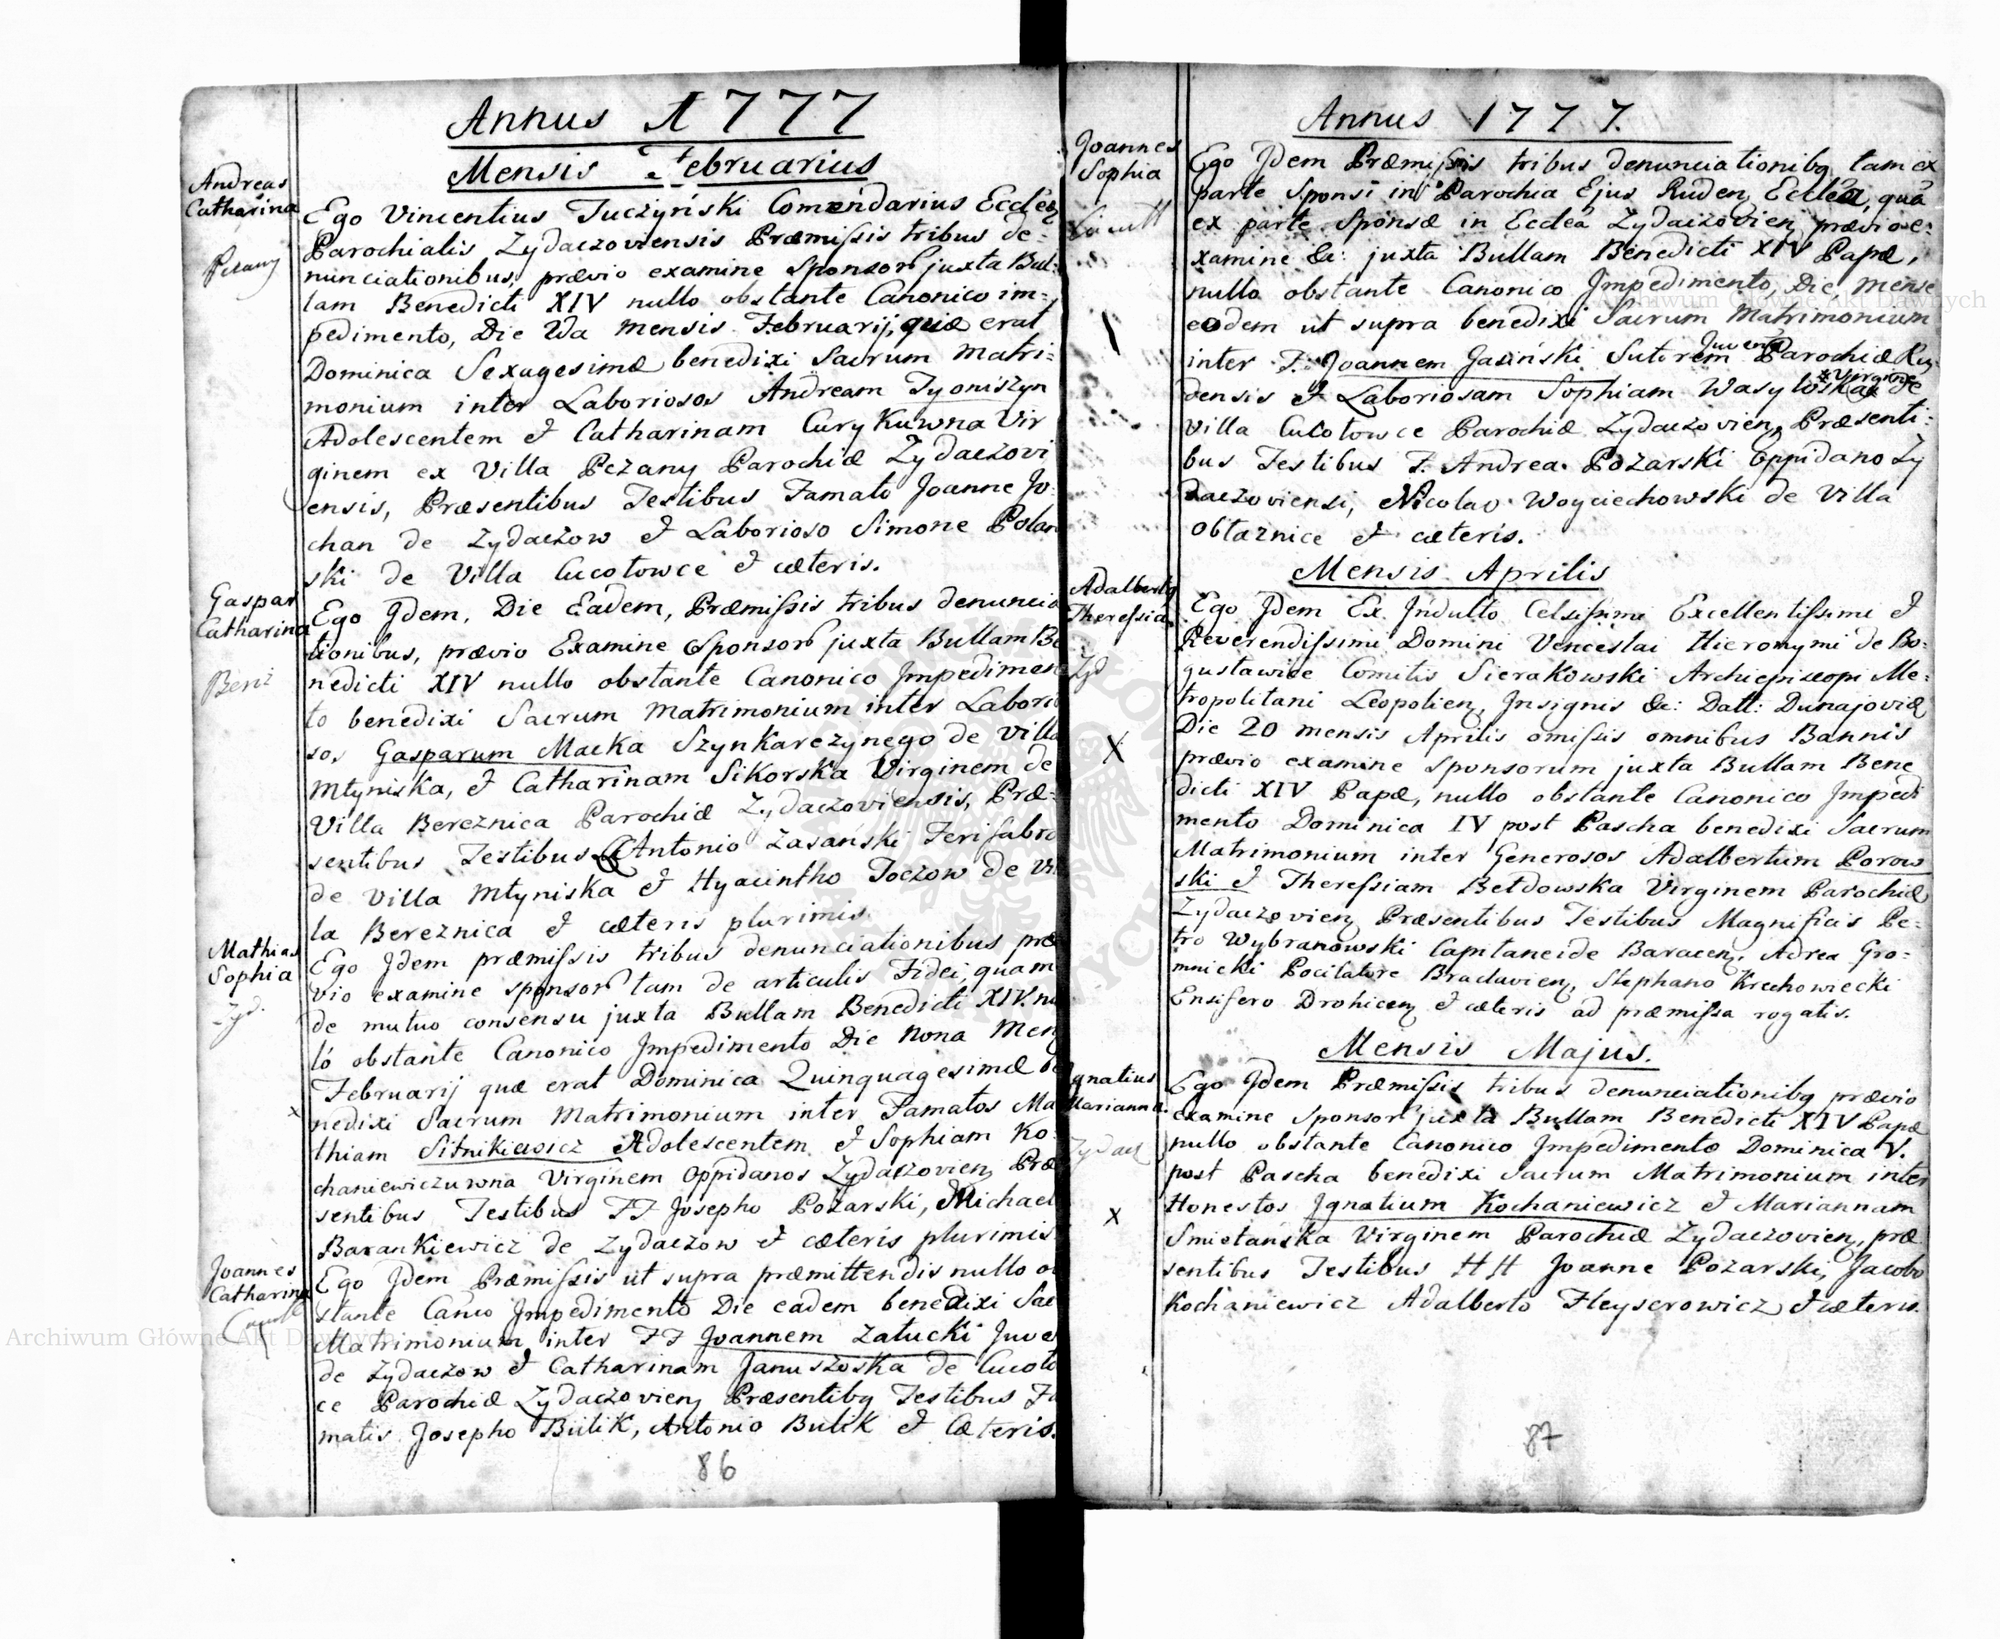 Annus 1777
Mensis Februarius
Andreas
Catharina
Pczany
Ego Vincentius Tuczyński Comendarius Eccleæ
Parochialis Zydaczoviensis Præmissis tribus de-
nunciationibus, prævio examine Sponsor juxta Bul-
lam Benedicti XIV nullo obstante Canonico im-
pedimento, Die 2da Mensis Februarij, quæ erat
Dominica Sexagesimæ benedixi Sacrum Matri-
monium inter Laboriosos Andream Tyoniszyn
Adolescentem et Catharinam Curykuwna Vir
ginem ex Villa Pczany Parochiæ Zydaczovi
ensis, Præsentibus Testibus Famato Joanne Jo-
chan de Zydaczow et Laborioso Simone Polan
ski de Villa Cucołowce et cæteris.
Gaspar
Catharina
Bereż
Ego Jdem, Die Eadem, Præmissis tribus denuncia
tionibus, prævio Examine Sponsor juxta Bullam Be
nedicti XIV nullo obstante Canonico Impedimen
to benedixi Sacrum Matrimonium inter Laborio
sos Gasparum Macka Szynkarczynego de Villa
Młyniska, et Catharinam Sikorska Virginem de
Villa Bereznica Parochiæ Zydaczoviensis, Præ-
sentibus Testibus Antonio Zasański Ferifabro
de Villa Młyniska et Hyacintho Toczow de Vil
la Bereznica et cæteris plurimis.
Mathias
Sophia
Zyd.
Ego Jdem præmissis tribus denunciationibus præ
vio examine sponsor tam de articulis Fidei, quam
de mutuo consensu juxta Bullam Benedicti XIV. nu
ló obstante Canonico Jmpedimento Die Nona Mens
Februarij quæ erat Dominica Quinquagesimæ be
nedixi Sacrum Matrimonium inter Famatos Ma
thiam Sitnikiewicz Adolescentem et Sophiam Ko-
chaniewiczuwna Virginem Oppidanos Zydaczovien, Præ
sentibus Testibus FF Josepho Pożarski, Michael
Barankiewicz de Zydaczow et cæteris plurimis.
Joannes
Catharina
Ego Jdem Præmissis ut supra præmittendis nullo o
stante Canco Jmpedimento Die eadem benedixi Sac
Matrimonium inter FF Joannem Załucki Juve
de Zydaczow et Catharinam Januszoska de Cucoło
ce Parochiæ Zydaczovien, Præsentibq Testibus Fa
matis Josepho Bulik, Antonio Bulik et Cæteris.
86
Annus 1777.
Joannes
Sophia
Ego Jdem Præmissis tribus denunciationibq tam ex
parte Sponsi in Parochia Ejus Ruden, Ecclea, quā
ex parte Sponsæ in Ecclea Zydaczovien, prævio e-
xamine &c: juxta Bullam Benedicti XIV Papæ,
nullo obstante Canonico Jmpedimento, Die Mense
eodem ut supra benedixi Sacrum Matrimonium
inter F. Joannem Jasiński Sutorem Juvenē Parochiæ Ru-
densis et Laboriosam Sophiam Wasyloska Virginē de
Villa Cucołowce Parochiæ Zydaczovien, Præsenti-
bus Testibus F. Andrea Pożarski Oppidano Zy
daczoviensi, Nicolao Woyciechowski de Villa
Obłaznice et cæteris.
Mensis Aprilis
Adalbertq
Theressia
Zyd
Ego Jdem Ex Jndulto Celsissimi Excellentissimi et
Reverendissimi Domini Venceslai Hieronymi de Bo-
gusławice Comitis Sierakowski Archiepiscopi Me-
tropolitani Leopolien, Insignis &c: Datt: Dunajoviæ
Die 20 mensis Aprilis omissis omnibus Bannis
prævio examine Sponsorum juxta Bullam Bene
dicti XIV Papæ, nullo obstante Canonico Jmpedi
mento Dominica IV post Pascha benedixi Sacrum
Matrimonium inter Generosos Adalbertum Porow
ski et Theressiam Bełdowska Virginem Parochiæ
Zydaczovien, Præsentibus Testibus Magnificis Pe-
tro Wybranowski Capitaneide Baracen, Adrea Gro-
mnicki Pocilatore Braclavien, Stephano Krechowiecki
Ensifero Drohicen, et cæteris ad præmissa rogatis.
Mensis Majus.
Ignatius
Marianna.
Zydacz
Ego Jdem Præmissis tribus denunciationibq prævio
examine Sponsor juxta Bullam Benedicti XIV Papæ
nullo obstante Canonico Jmpedimento Dominica V.
post Pascha benedixi Sacrum Matrimonium inter
Honestos Jgnatium Kochaniewicz et Mariannam
Smietańska Virginem Parochiæ Zydaczovien, præ
sentibus Testibus HH Joanne Pożarski, Jacobo
Kochaniewicz Adalberto Heyserowicz et cæteris.
87
Archiwum Główne Akt Dawnych
Archiwum Główne Akt Dawnych